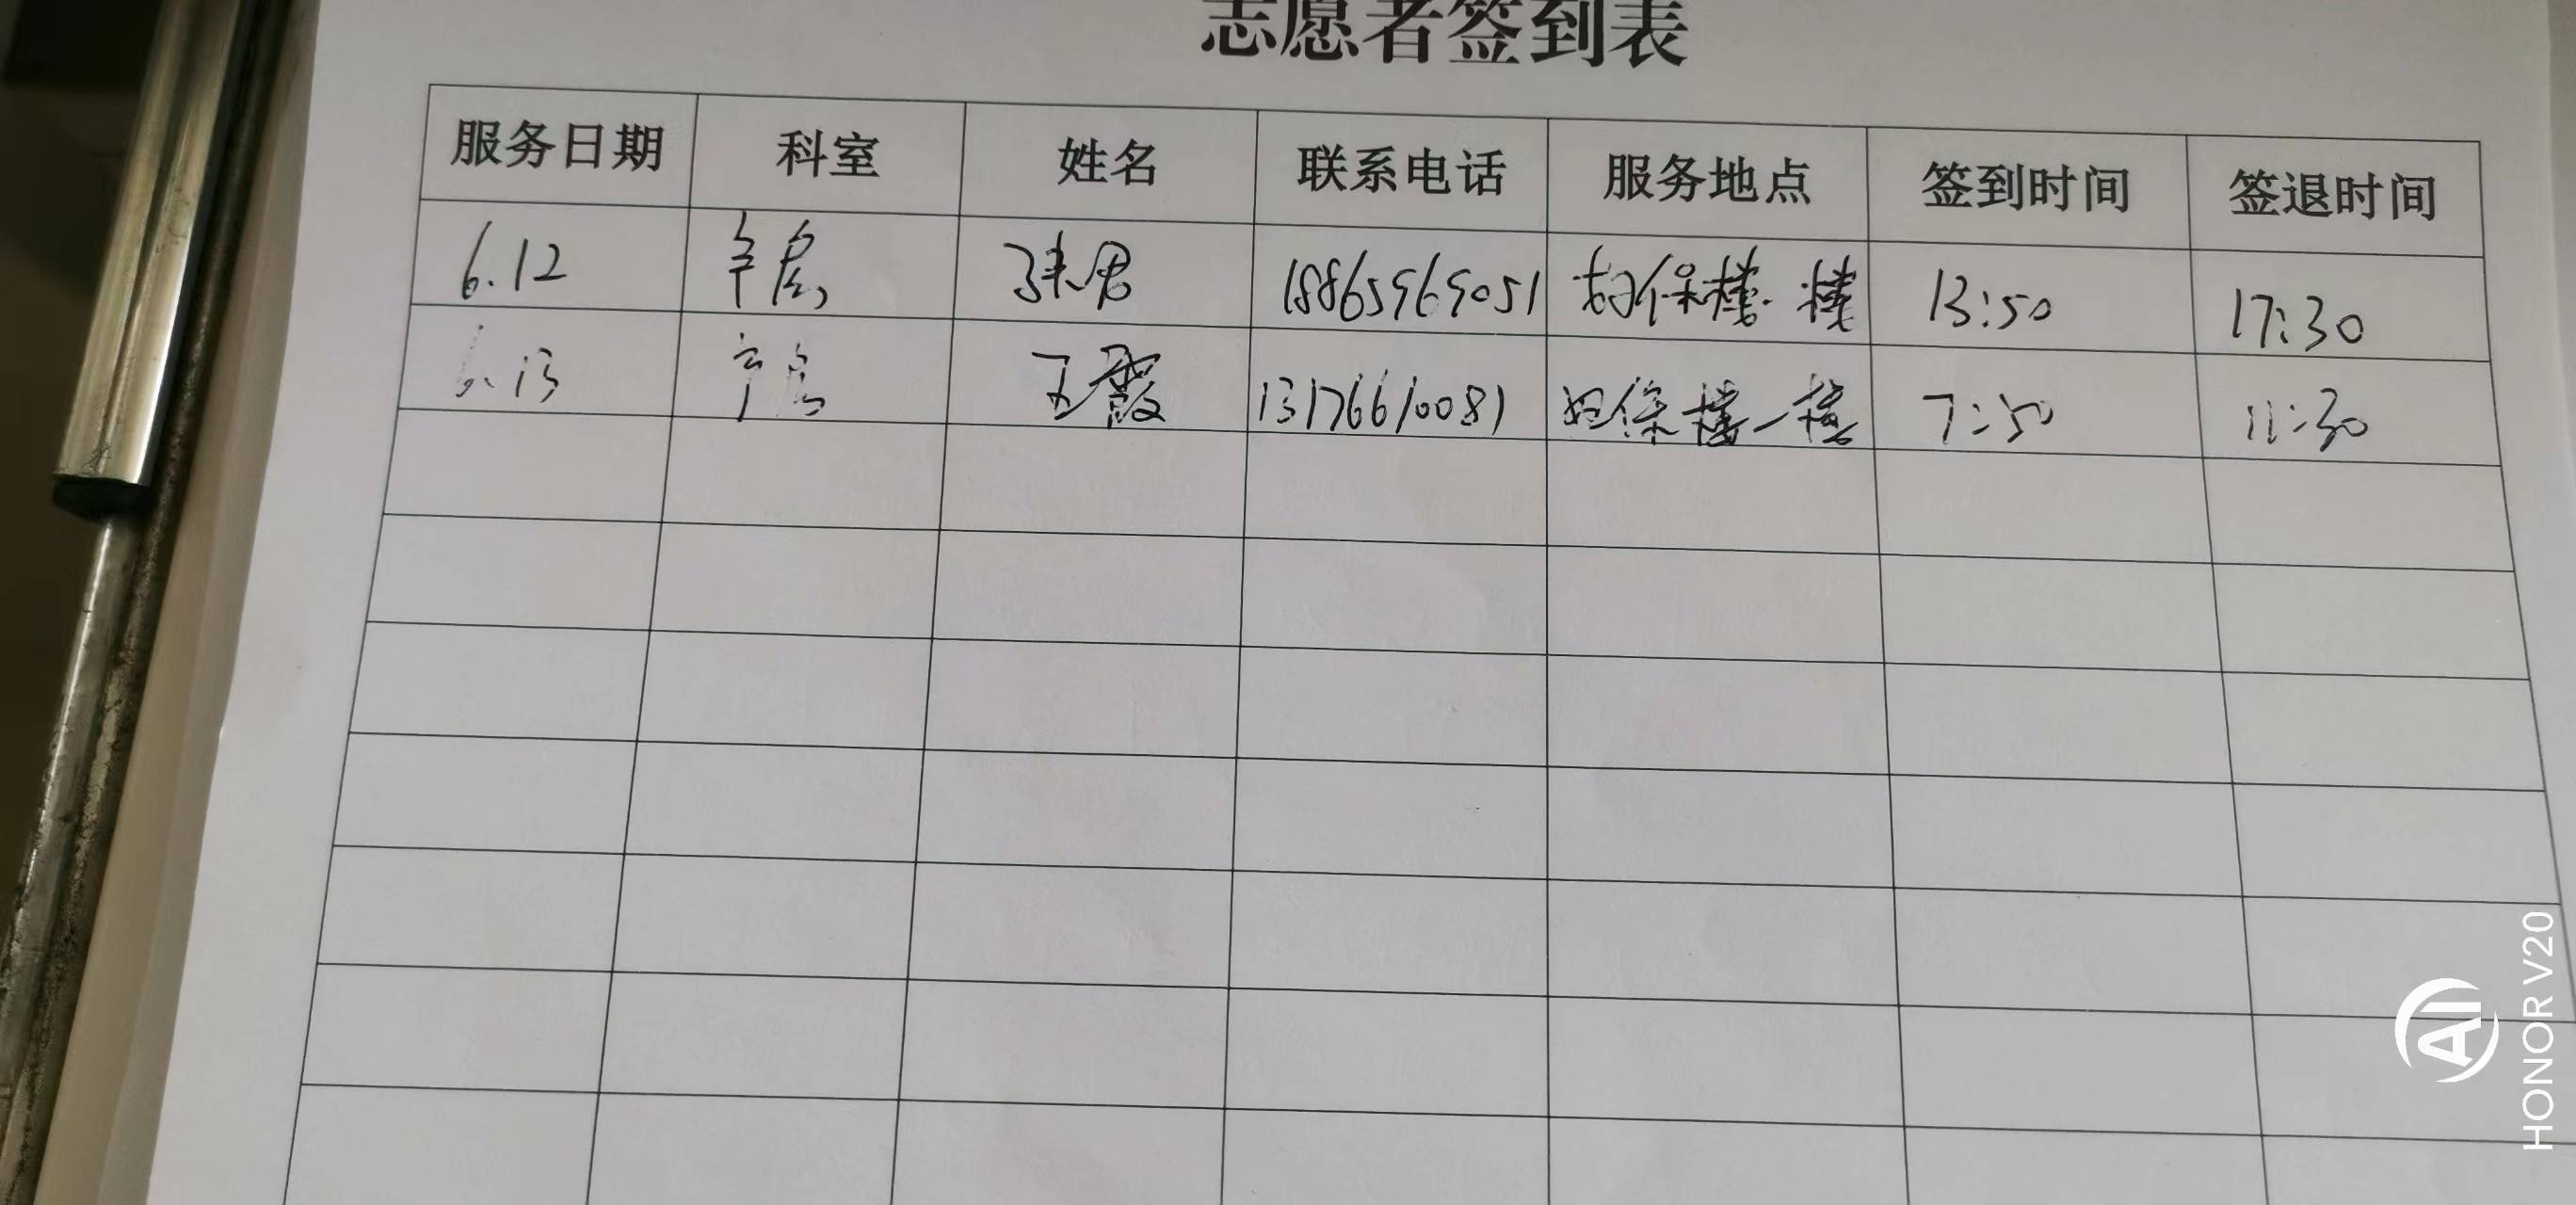 志愿者签到表
服务日期 科室 姓名 联系电话 服务地点 签到时间 签退时间
6.12 18865969051 妇保楼一楼 13:50 17:30
6.13 王霞 13176610081 妇保楼一楼 7:50 11:30
AI
HONOR V20